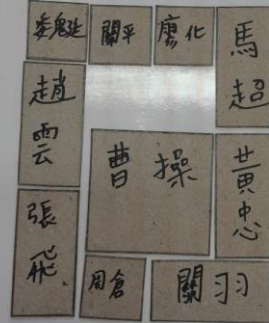 魏延
關平
廖化
馬超
趙雲
曹操
黃忠
張飛
周倉
關羽